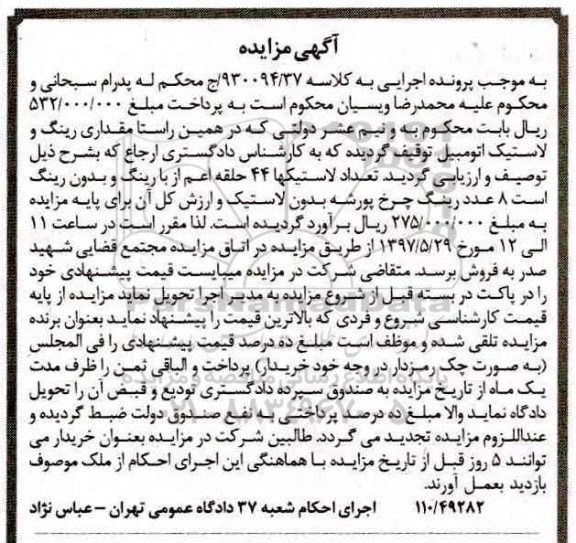 آگهی مزایده
به موجب پرونده اجرایی به کلاسه ۹۳۰۰۹۴/۳۷/ج محکم له پدرام سبحانی و
محکوم علیه محمدرضا ویسیان محکوم است به پرداخت مبلغ ۵۳۲/۰۰۰/۰۰۰
ریال بابت محکوم به و نیم عشر دولتی که در همین راستا مقداری رینگ و
لاستیک اتومبیل توقیف گردیده که به کارشناس دادگستری ارجاع که بشرح ذیل
توصیف و ارزیابی گردید. تعداد لاستیکها ۴۴ حلقه اعم از با رینگ و بدون رینگ
است ۸ عدد رینگ چرخ پورشه بدون لاستیک و ارزش کل آن برای پایه مزایده
به مبلغ ۲۷۵/۰۰۰/۰۰۰ ریال برآورد گردیده است. لذا مقرر است در ساعت ۱۱
الی ۱۲ مورخ ۱۳۹۷/۵/۲۹ از طریق مزایده در اتاق مزایده مجتمع قضایی شهید
صدر به فروش برسد. متقاضی شرکت در مزایده میبایست قیمت پیشنهادی خود
را در پاکت در بسته قبل از شروع مزایده به مدیر اجرا تحویل نماید مزایده از پایه
قیمت کارشناسی شروع و فردی که بالاترین قیمت را پیشنهاد نماید بعنوان برنده
مزایده تلقی شده و موظف است مبلغ ده درصد قیمت پیشنهادی را فی المجلس
(به صورت چک رمزدار در وجه خود خریدار) پرداخت و الباقی ثمن را ظرف مدت
یک ماه از تاریخ مزایده به صندوق سپرده دادگستری تودیع و قبض آن را تحویل
دادگاه نماید والا مبلغ ده درصد پرداختی به نفع صندوق دولت ضبط گردیده و
عنداللزوم مزایده تجدید می گردد. طالبین شرکت در مزایده بعنوان خریدار می
توانند ۵ روز قبل از تاریخ مزایده با هماهنگی این اجرای احکام از ملک موصوف
بازدید بعمل آورند.
۱۱۰/۴۹۲۸۲ اجرای احکام شعبه ۳۷ دادگاه عمومی تهران – عباس نژاد